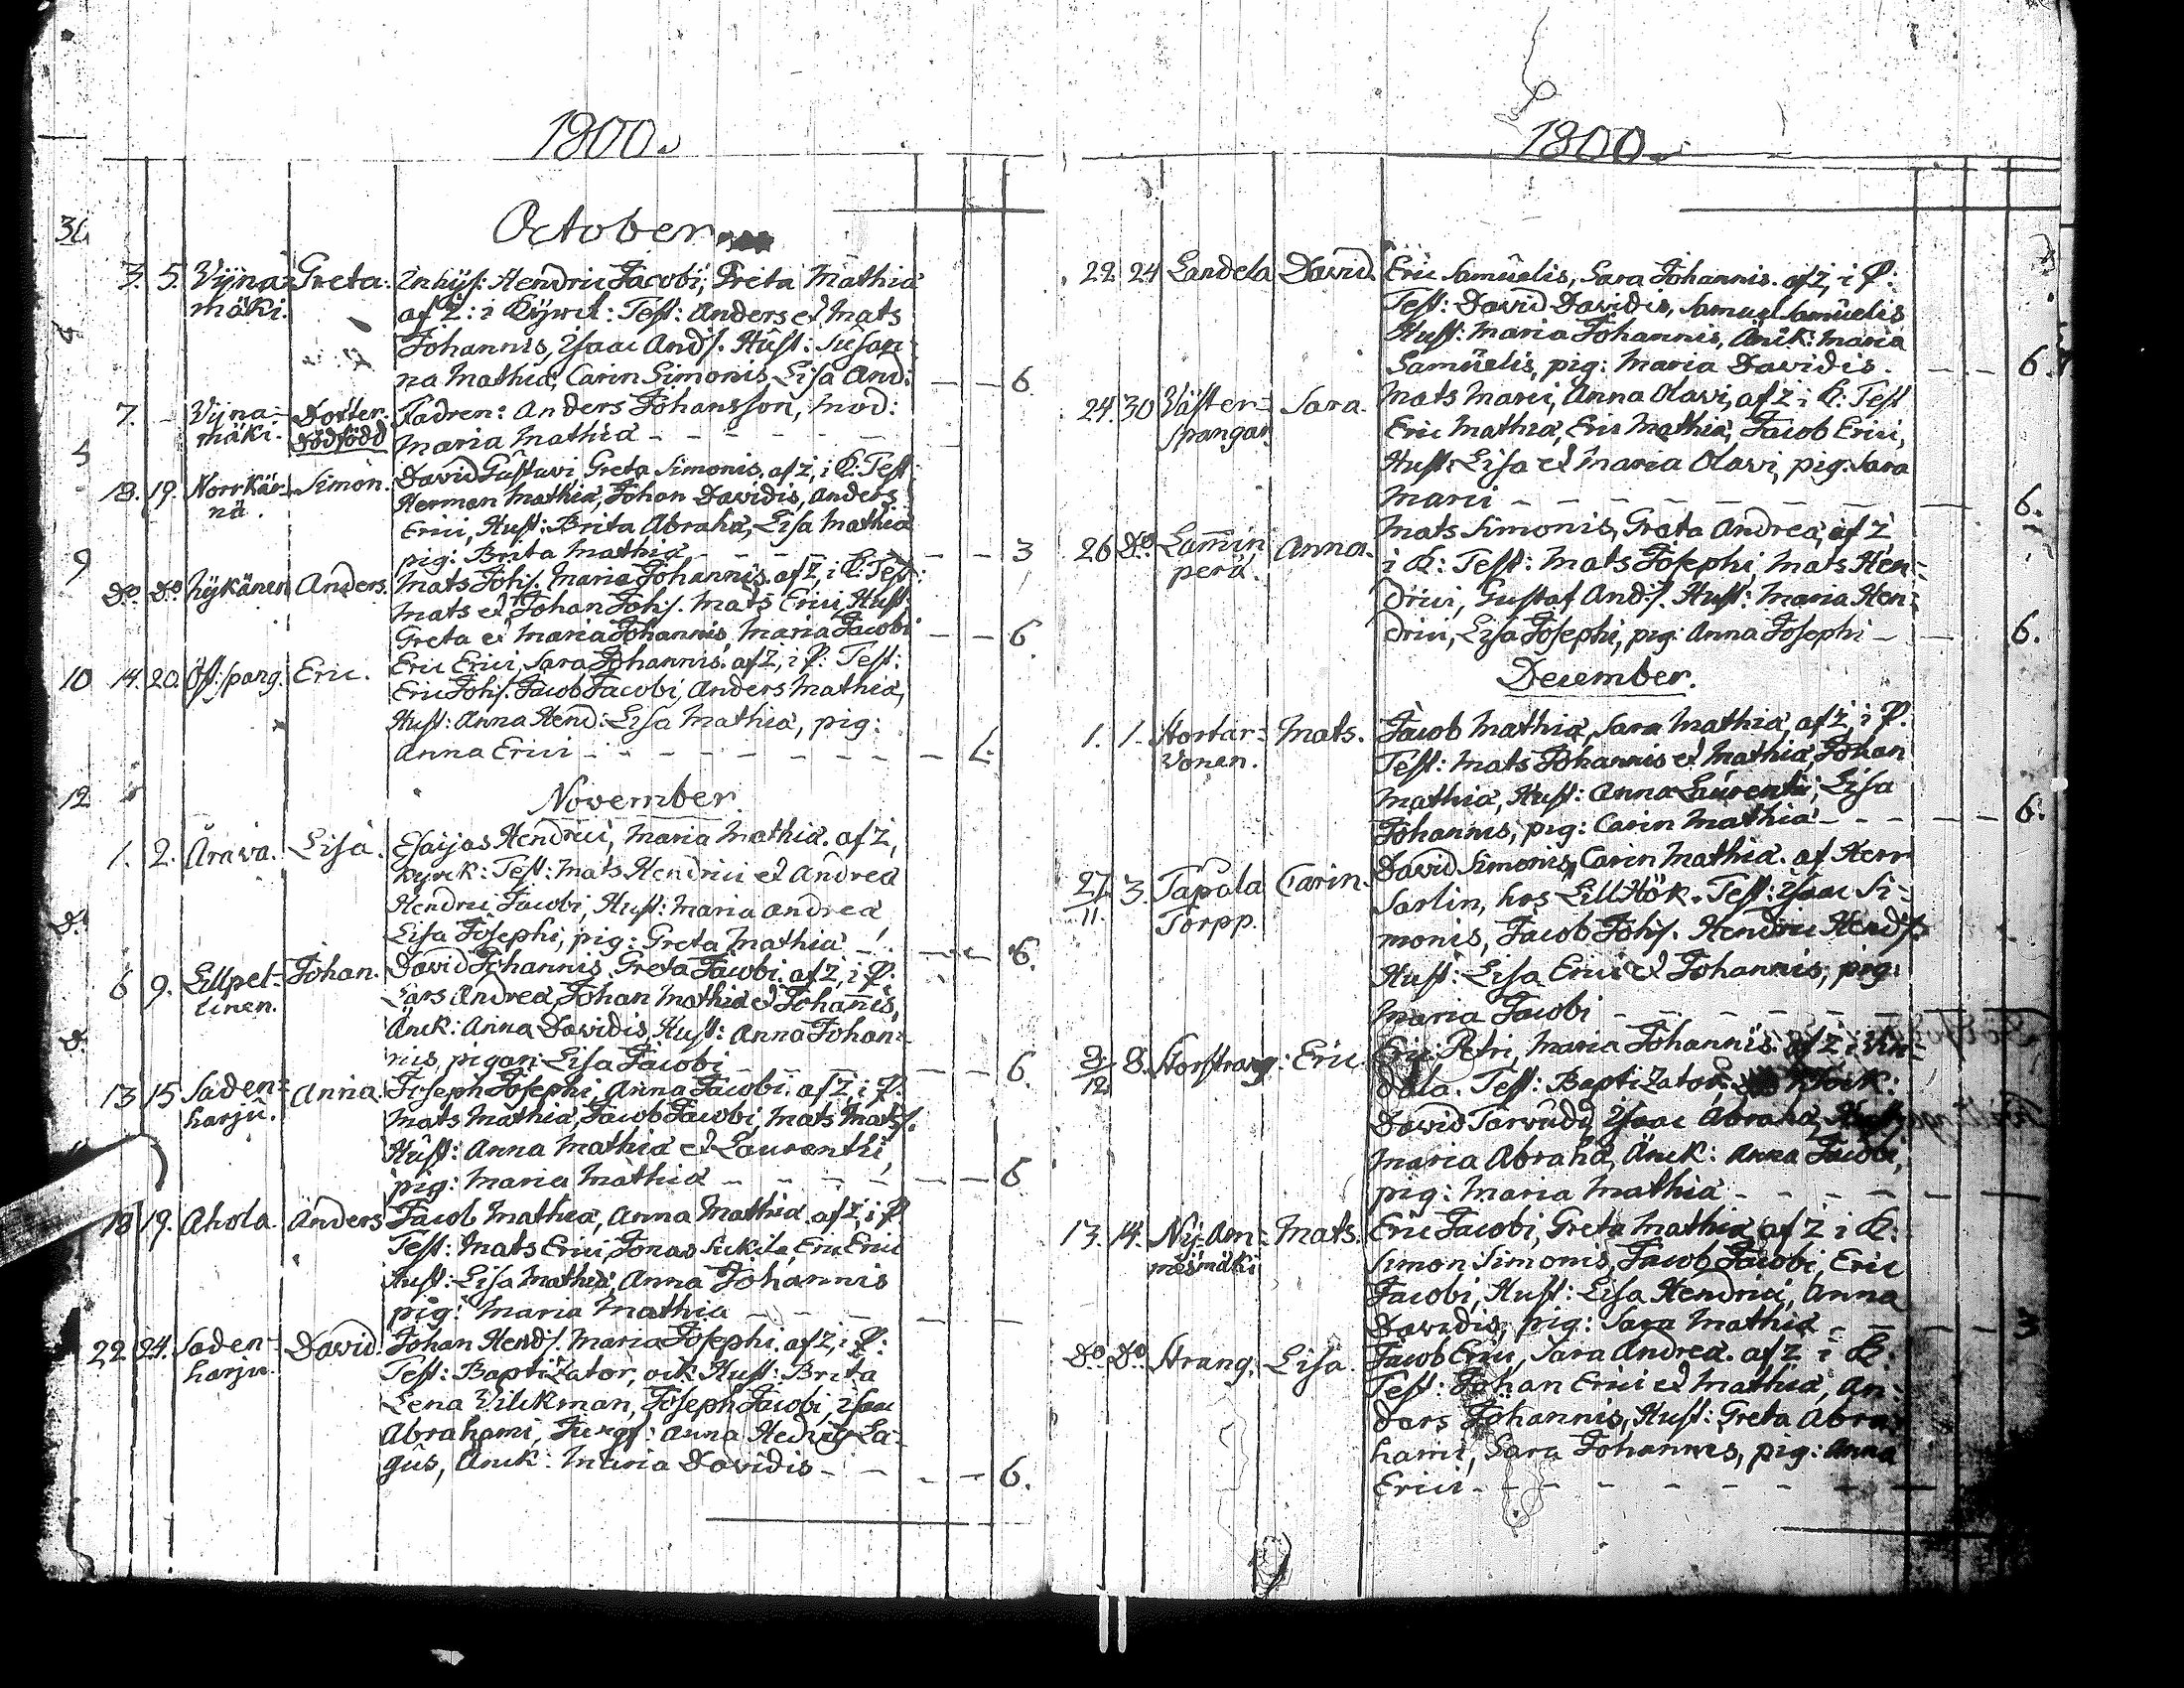 1800.
October
3. 5. Wijna= Greta. Inhys: Hendric Jacobi, Greta Mathiæ
mäki. af Z: i Kyrck: Test: Anders et Mats
Johannis, Isaac Ands. Hust: Susan=
na Mathiæ, Carin Simonis, Lisa And: — — 6.
7. – Wijna= Dotter. Fadren: Anders Johansson, Mod:
mäki. Dödfödd Maria Mathiæ – – – – –
18. 19. Norrkär= Simon. David Gustavi, Greta Simonis. af Z, i K: Test:
nä. Herman Mathiæ, Johan Davidis, Anders
Erici, Hust: Brita Abrahæ, Lisa Mathiæ
pig: Brita Mathiæ – – – – – 3
Do Do Nykänen Anders. Mats Johs. Maria Johannis. af Z, i K: Test:
Mats et Johan Johs. Mats Erici, Hust:
Greta et Maria Johannis, Maria Jacobi – – 6.
14. 20. Öst:spang. Eric. Eric Erici, Sara Johannis. af Z, i P: Test:
Eric Johs. Jacob Jacobi, Anders Mathiæ,
Hust: Anna Hend: Lisa Mathiæ, pig:
Anna Erici – – – – – – –
November.
1. 2. Arava. Lisa. Esaijas Hendrici, Maria Mathiæ. af Z,
Kyrck: Test: Mats Hendrici et Andreæ
Hendric Jacobi, Hust: Maria Andreæ
Lisa Josephi, pig: Greta Mathiæ – – – 6.
6 9. Lillpel= Johan. David Johannis, Greta Jacobi. af Z, i P:
tinen. Lars Andreæ, Johan Mathiæ et Johannis,
Änck: Anna Davidis, Hust: Anna Johan=
nis, pigan: Lisa Jacobi – – – 6.
13 15 Saden= Anna. Joseph Josephi, Anna Jacobi. af Z, i P:
harju. Mats Mathiæ, Jacob Jacobi, Mats Mats.
Hust: Anna Mathiæ et Laurenthi,
pig: Maria Mathiæ – – – – – 6
18 19. Ahola. Anders Jacob Mathiæ, Anna Mathiæ. af Z, i P
Test: Mats Erici, Jonas Sickila, Eric Erici
Hust: Lisa Mathiæ, Anna Johannis
pig: Maria Mathiæ – – –
22 24. Saden= David. Johan Hends. Maria Josephi. af Z, i P:
harju. Test: Baptizator, ock Hust: Brita
Lena Wilckman, Joseph Jacobi, Isaac
Abrahami, Jungf: Anna Hedvig La=
gus, Änck: Maria Davidis – – – – 6.
1800.
22. 24 Landela David. Eric Samuelis, Sara Johannis. af Z, i P:
Test: David Davidis, Samuel Samuelis
Hust: Maria Johannis, Änck: Maria
Samuelis, pig: Maria Davidis. – – 6.
24. 30 Wäster= Sara. Mats Marci, Anna Olavi, af Z i K: Test
spangar Eric Mathiæ, Eric Mathiæ, Jacob Erici,
Hust: Lisa et Maria Olavi, pig: Sara
Marci – – – – – – – 6.
26 Do. Lamin Anna. Mats Simonis, Greta Andreæ, af Z
perä. i K: Test: Mats Josephi, Mats Hen=
drici, Gustaf Ands. Hust: Maria Hen=
drici, Lisa Josephi, pig: Anna Josephi – – 6.
December.
1. 1. Mats. Jacob Mathiæ, Sara Mathiæ, af Z, i P.
vonen. Test: Mats Johannis et Mathiæ, Johan
Mathiæ, Hust: Anna Laurentii, Lisa
Johannis, pig: Carin Mathiæ – – – – 6.
27/11 3. Tapola Carin. David Simonis, Carin Mathiæ. af Herr
Torpp. Sarlin, hos LillHök. Test: Isaac Si=
monis, Jacob Johs. Hendric Hends.
Hust: Lisa Erici et Johannis, pig:
Maria Jacobi – – – – –
8. Storstrang: Eric Eric Petri, Maria Johannis. af Z i Vin=
dala. Test: Baptizator, Klock:
David Tarvudd, Isaac Abrahæ, Hust:
Maria Abrahæ, Änck: Anna Jacobi,
pig: Maria Mathiæ – – – – – –
13. 14. Mats. Eric Jacobi, Greta Mathiæ, af Z i K:
Simon Simonis, Jacob Jacobi, Eric
Jacobi, Hust: Lisa Hendrici, Anna
Davidis, pig: Sara Mathiæ – – – – 3
Do. Do. Strang. Lisa. Jacob Erici, Sara Andreæ. af Z i K:
Test: Johan Erici et Mathiæ, An=
ders Johannis, Hust: Greta Abra=
hami, Sara Johannis, pig: Anna
Erici – – – – – – –